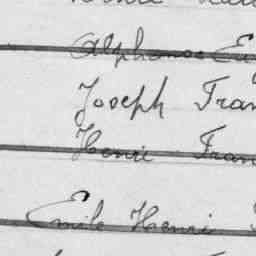 Alphonse Eu
Joseph Fran
Henri Fran
Emile Henri